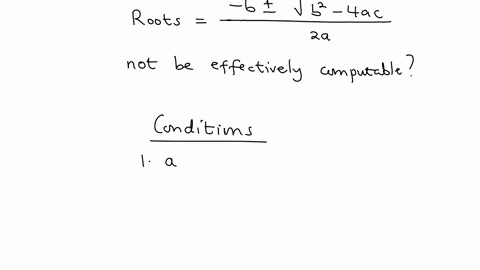 Roots = (-b ± √(b² - 4ac)) / 2a
not be effectively computable?
Conditions
1. a